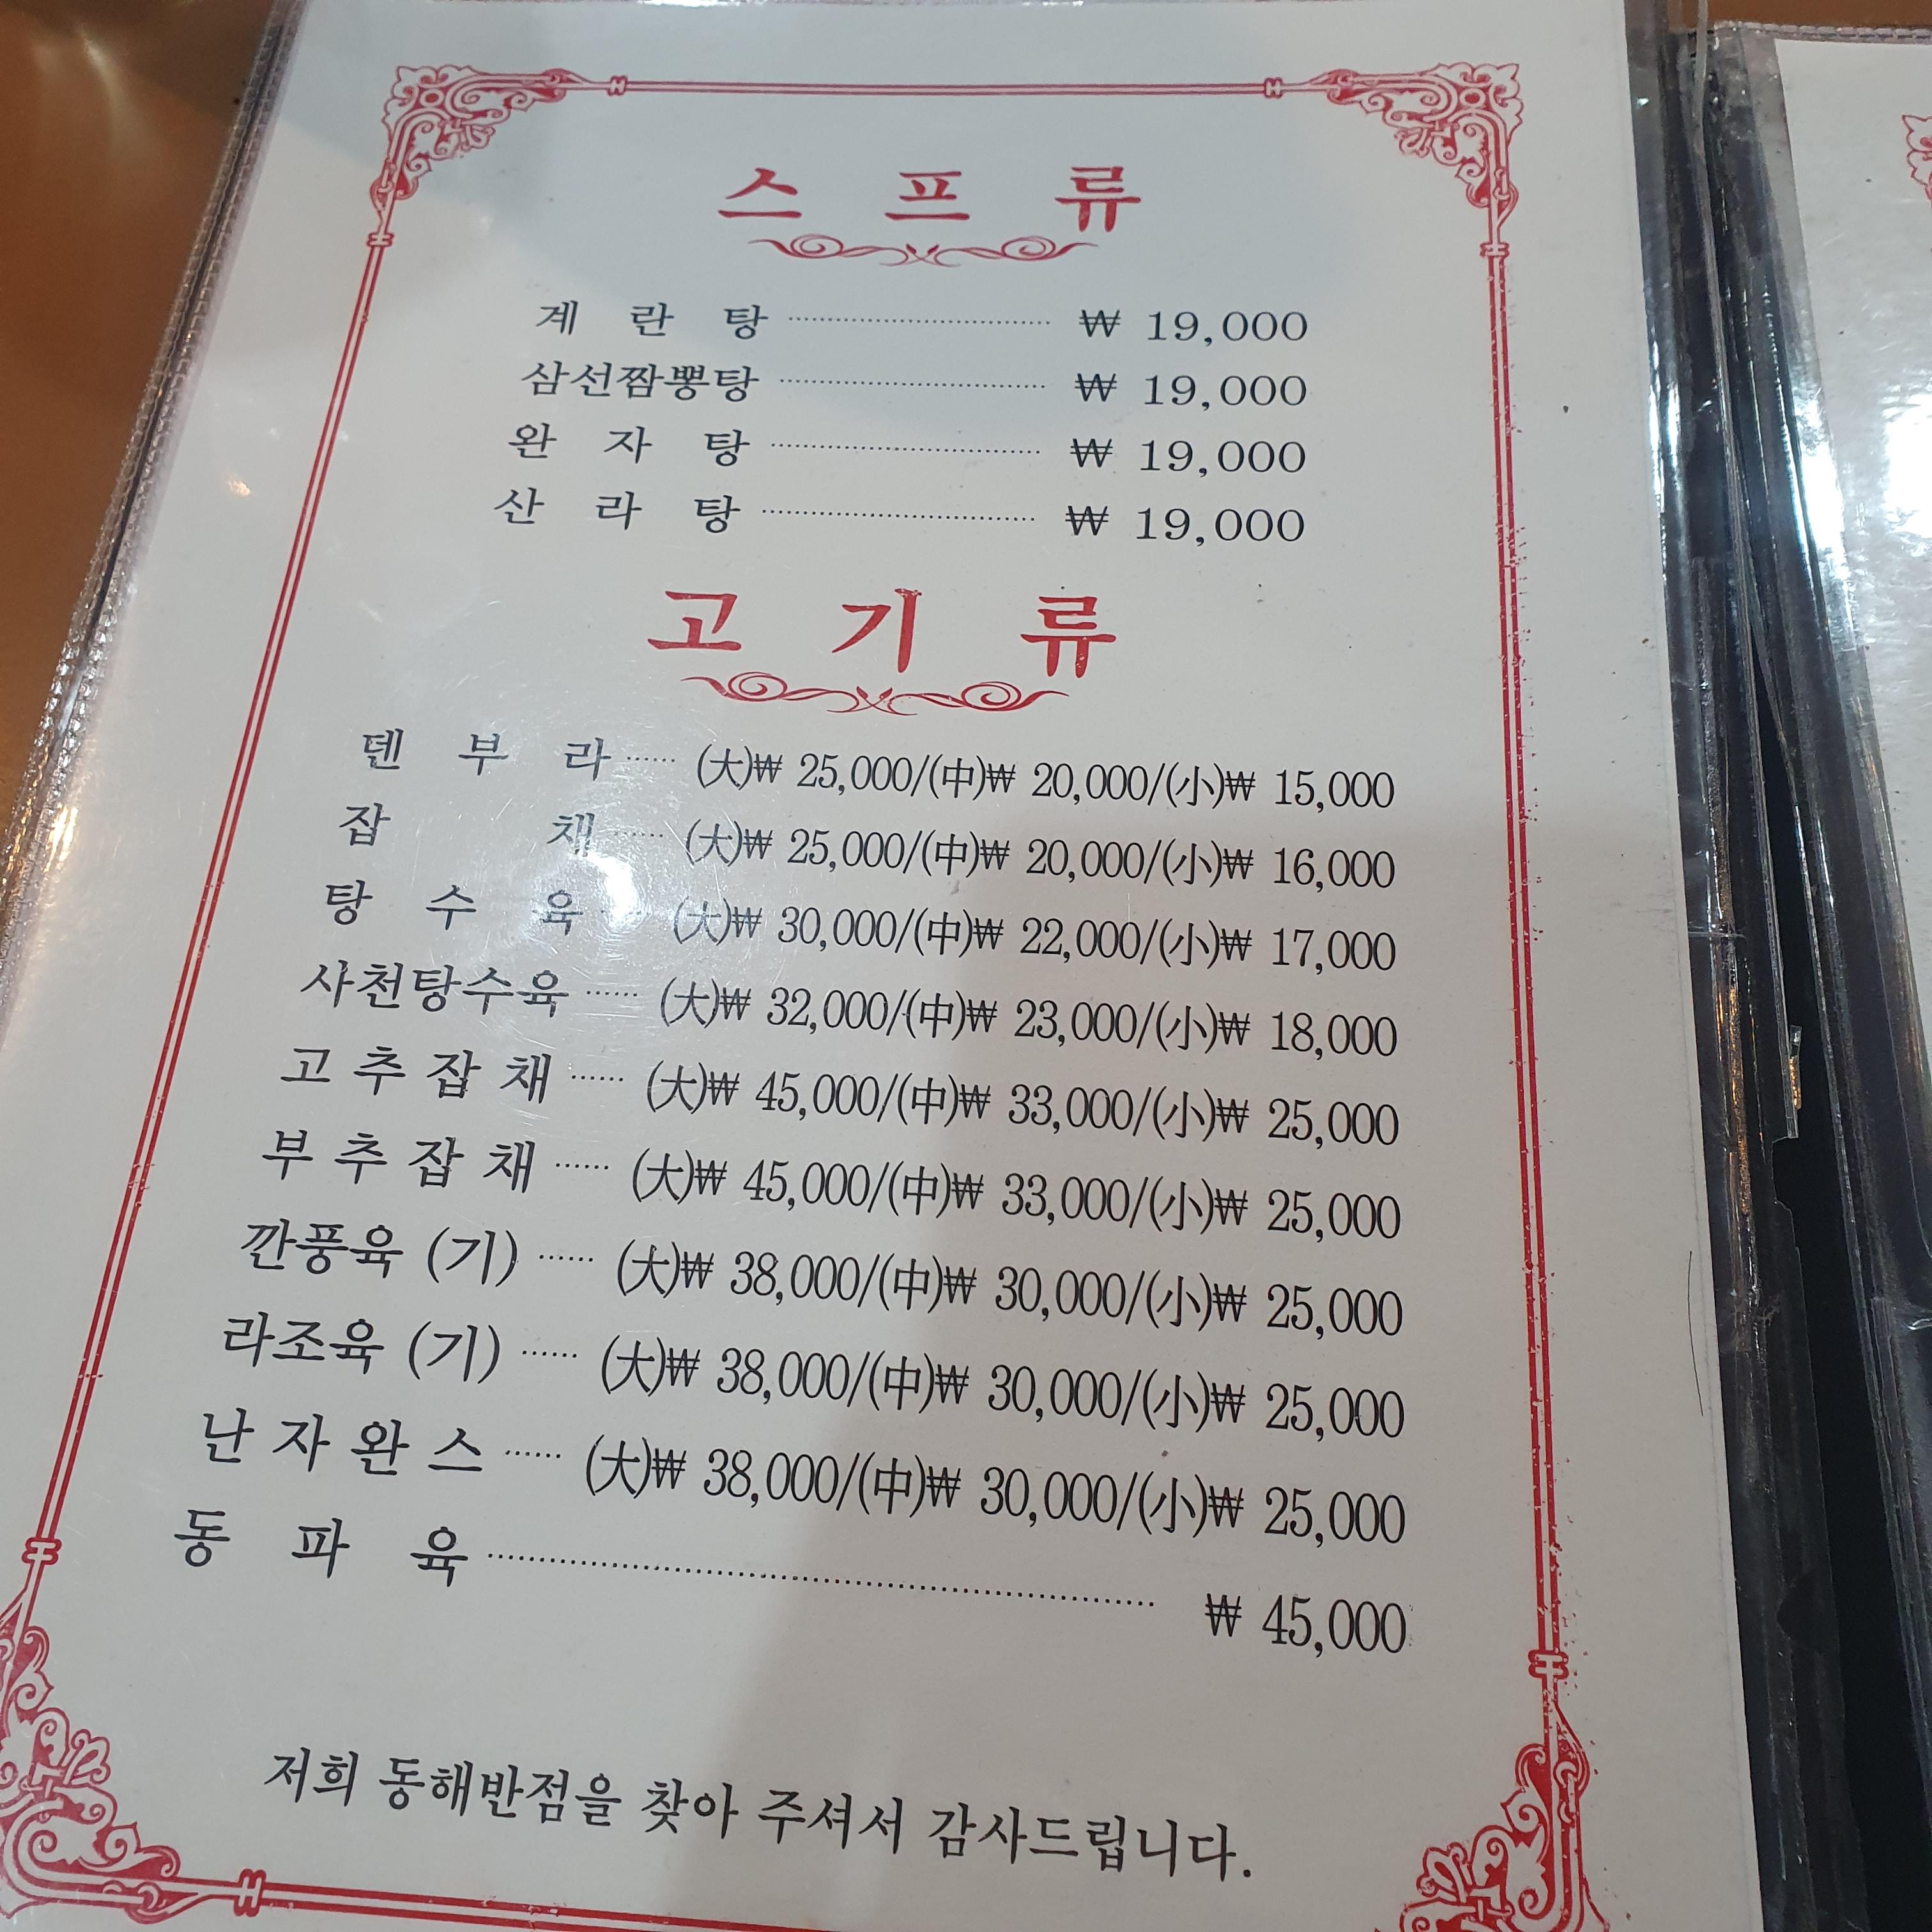 스 프 류
계 란 탕 ₩ 19,000
삼선짬뽕탕 ₩ 19,000
완 자 탕 ₩ 19,000
산 라 탕 ₩ 19,000
고 기 류
덴 부 라 (大)₩ 25,000/(中)₩ 20,000/(小)₩ 15,000
잡 채 (大)₩ 25,000/(中)₩ 20,000/(小)₩ 16,000
탕 수 육 (大)₩ 30,000/(中)₩ 22,000/(小)₩ 17,000
사천탕수육 (大)₩ 32,000/(中)₩ 23,000/(小)₩ 18,000
고 추 잡 채 (大)₩ 45,000/(中)₩ 33,000/(小)₩ 25,000
부 추 잡 채 (大)₩ 45,000/(中)₩ 33,000/(小)₩ 25,000
깐풍육 (기) (大)₩ 38,000/(中)₩ 30,000/(小)₩ 25,000
라조육 (기) (大)₩ 38,000/(中)₩ 30,000/(小)₩ 25,000
난 자 완 스 (大)₩ 38,000/(中)₩ 30,000/(小)₩ 25,000
동 파 육 ₩ 45,000
저희 동해반점을 찾아 주셔서 감사드립니다.